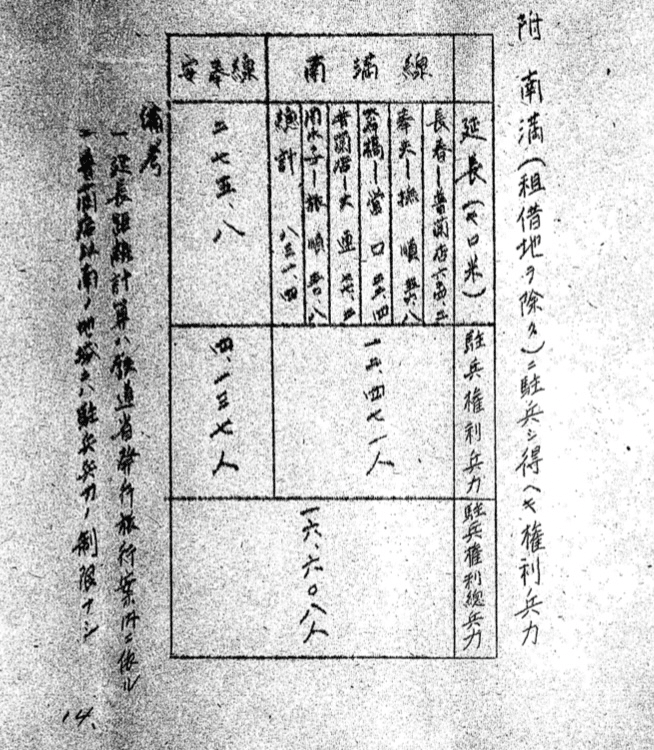 附 南満(租借地ヲ除ク)ニ駐兵シ得ヘキ権利兵力
延長(キロ米)
駐兵権利兵力
駐兵権利総兵力
南満線
長春ー普蘭店
奉天ー撫順
石橋ー営口 二二、四
普蘭店ー大連
周水子ー旅順 五〇、八
総計 八三一、四
一二、四七一人
安奉線
二七五、八
四、一三七人
一六、六〇八人
備考
一 延長距離計算ハ鉄道省発行旅行案内ニ依ル
一 普蘭店以南ノ地域ニハ駐兵兵力ノ制限ナシ
14.